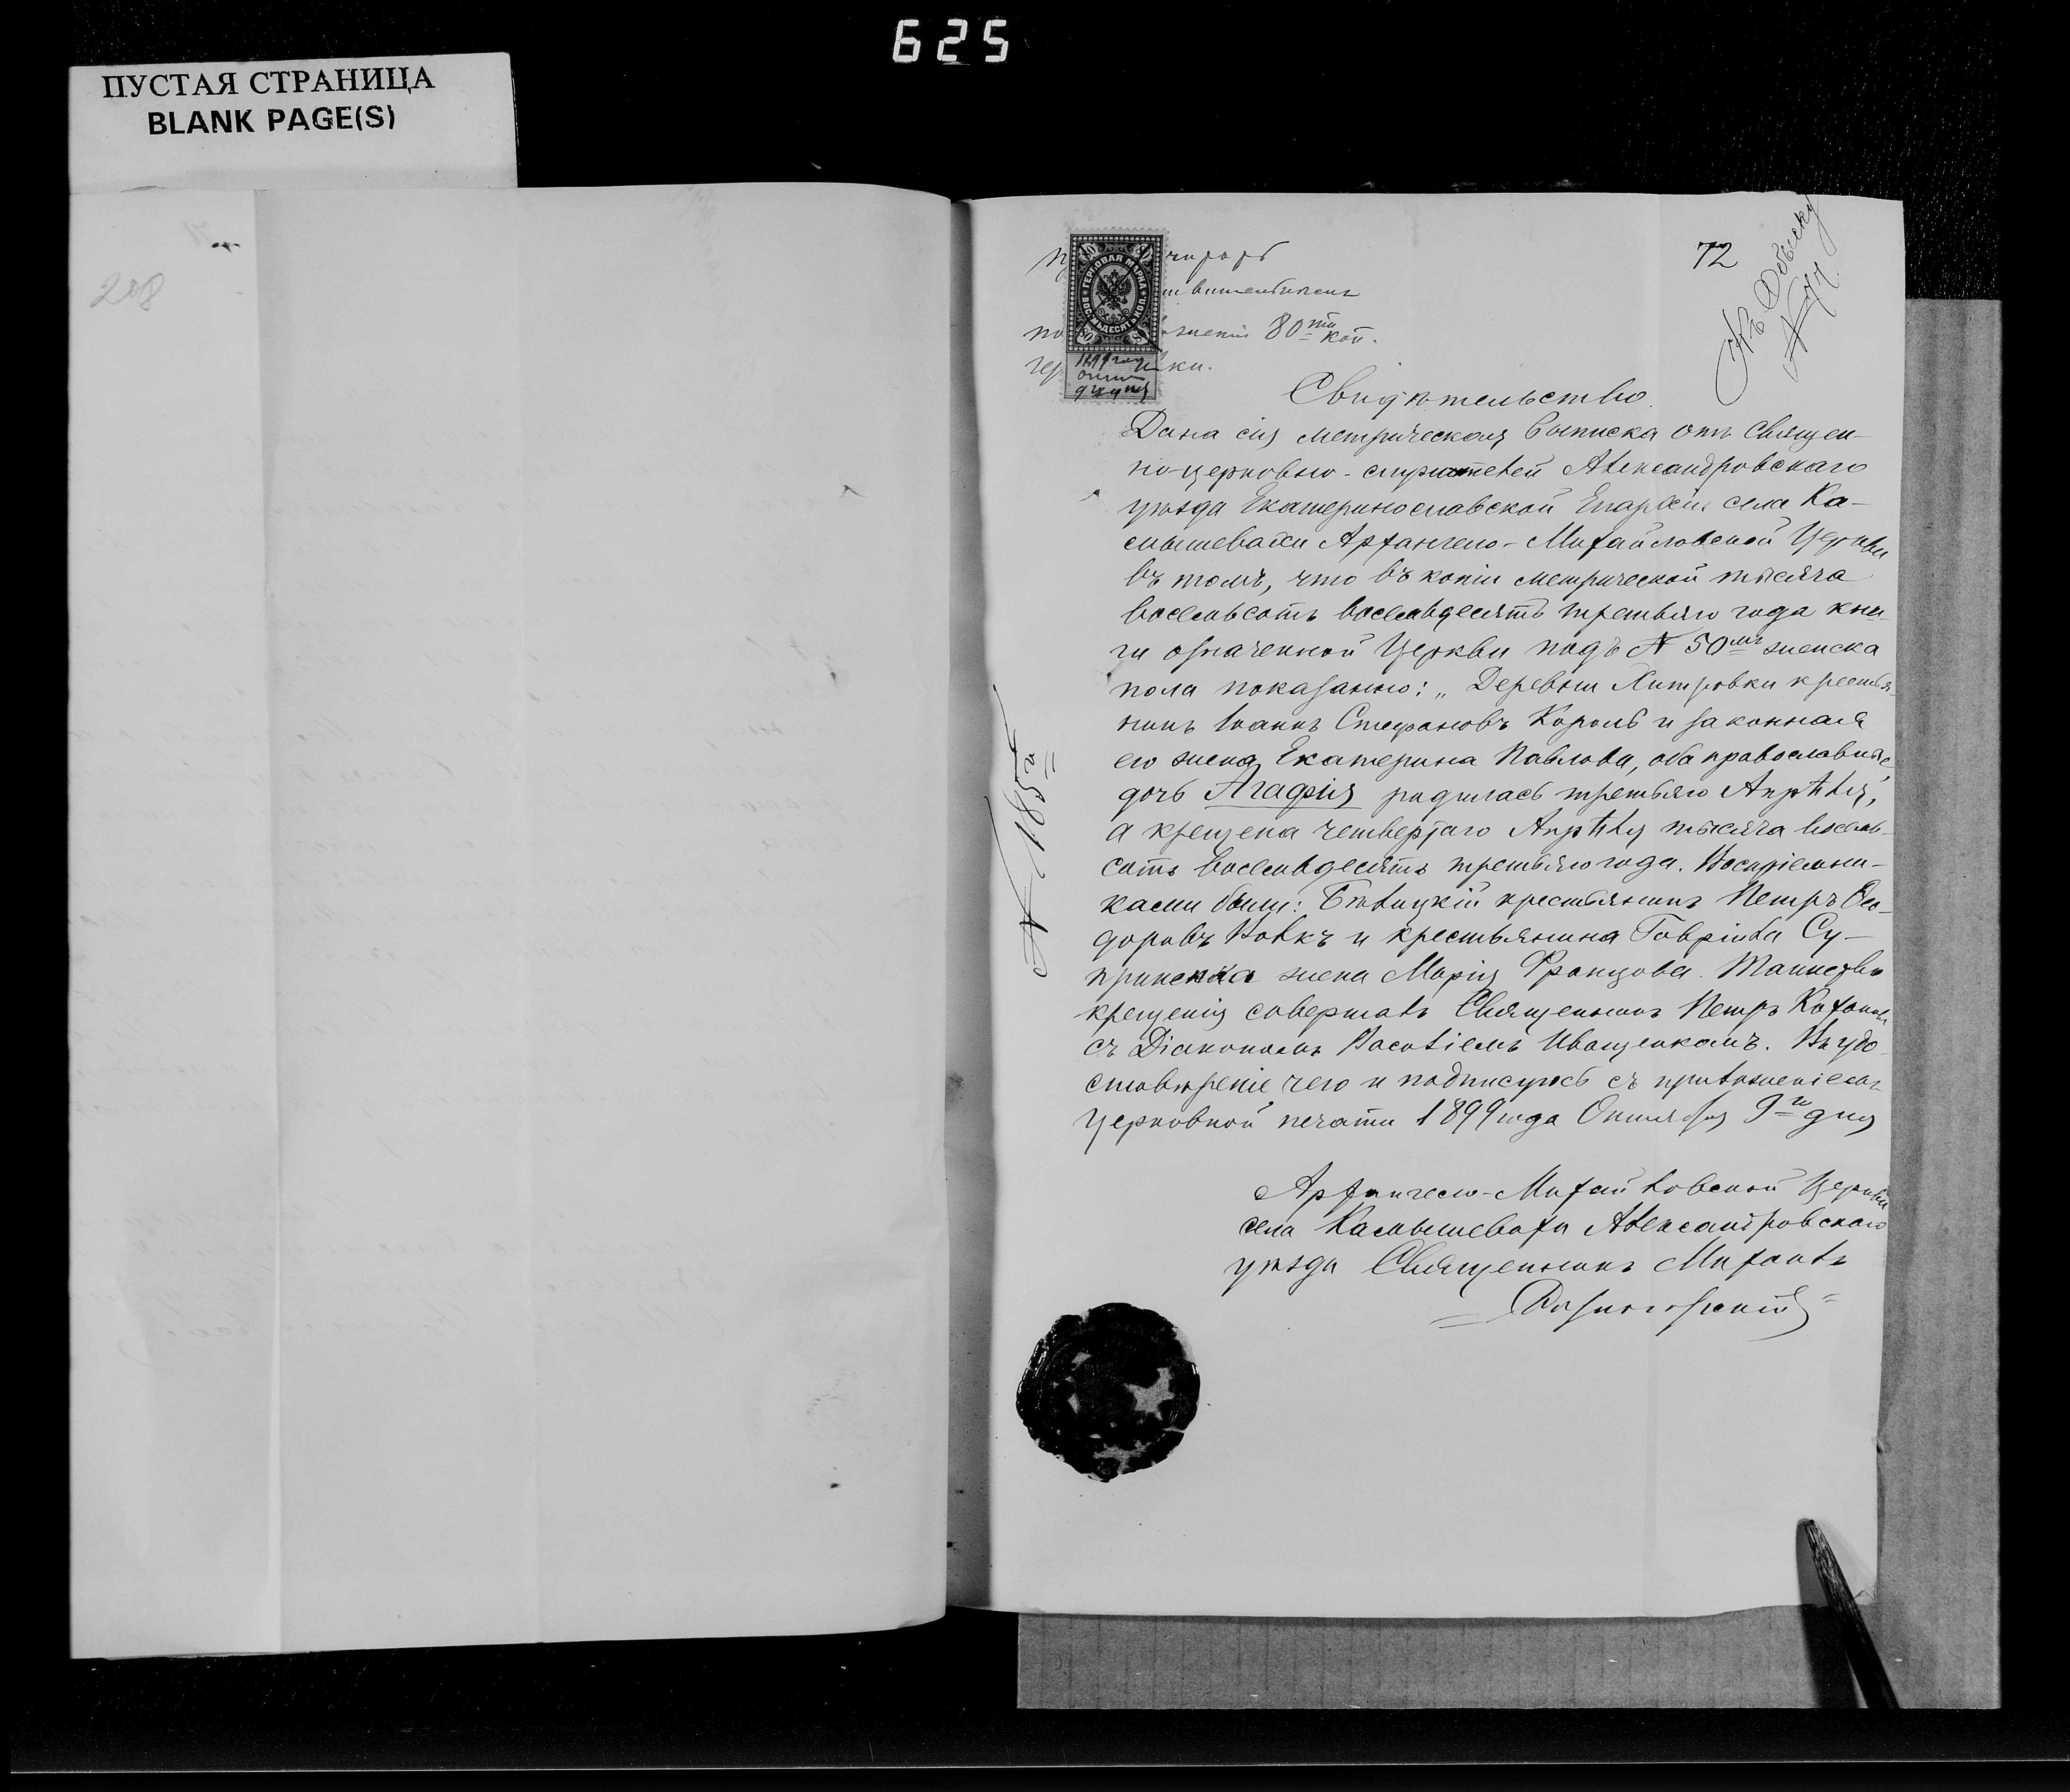 625
ПУСТАЯ СТРАНИЦА
BLANK PAGE(S)
208
72
80 ти коп.
ГЕРБОВАЯ МАРКА
ВОСЕМЬДЕСЯТЪ КОП.
80
Свидѣтельство
Дана сія метрическая выписка отъ Священ-
но-церковно-служителей Александровскаго
уѣзда Екатеринославской Епархіи села Ка-
мышевахи Архангело-Михайловской Церкви
въ томъ, что въ копіи метрической тысяча
восемьсотъ восемьдесятъ третьяго года кни-
ги означенной Церкви подъ № 50мъ женска
пола показанно: „Деревни Хитровки крестья-
нинъ Іоаннъ Стефановъ Король и законная
его жена Екатерина Павлова, оба православные,
дочь Агафія родилась третьяго Апрѣля,
а крещена четвертаго Апрѣля тысяча восемь-
сотъ восемьдесятъ третьяго года. Воспріемни-
ками были: Бѣлицкій крестьянинъ Петръ Ѳео-
доровъ Вовкъ и крестьянина Гавріила Су-
приненка жена Марія Францова. Таинство
крещенія совершалъ Священникъ Петръ
съ Діакономъ Василіемъ Иващенкомъ. Въ удо-
стовѣреніе чего и подписуюсь съ приложеніемъ
церковной печати 1899 года Октября 9го дня
№ 185й
Архангело-Михайловской Церкви
села Камышевахи Александровскаго
уѣзда Священникъ Михаилъ